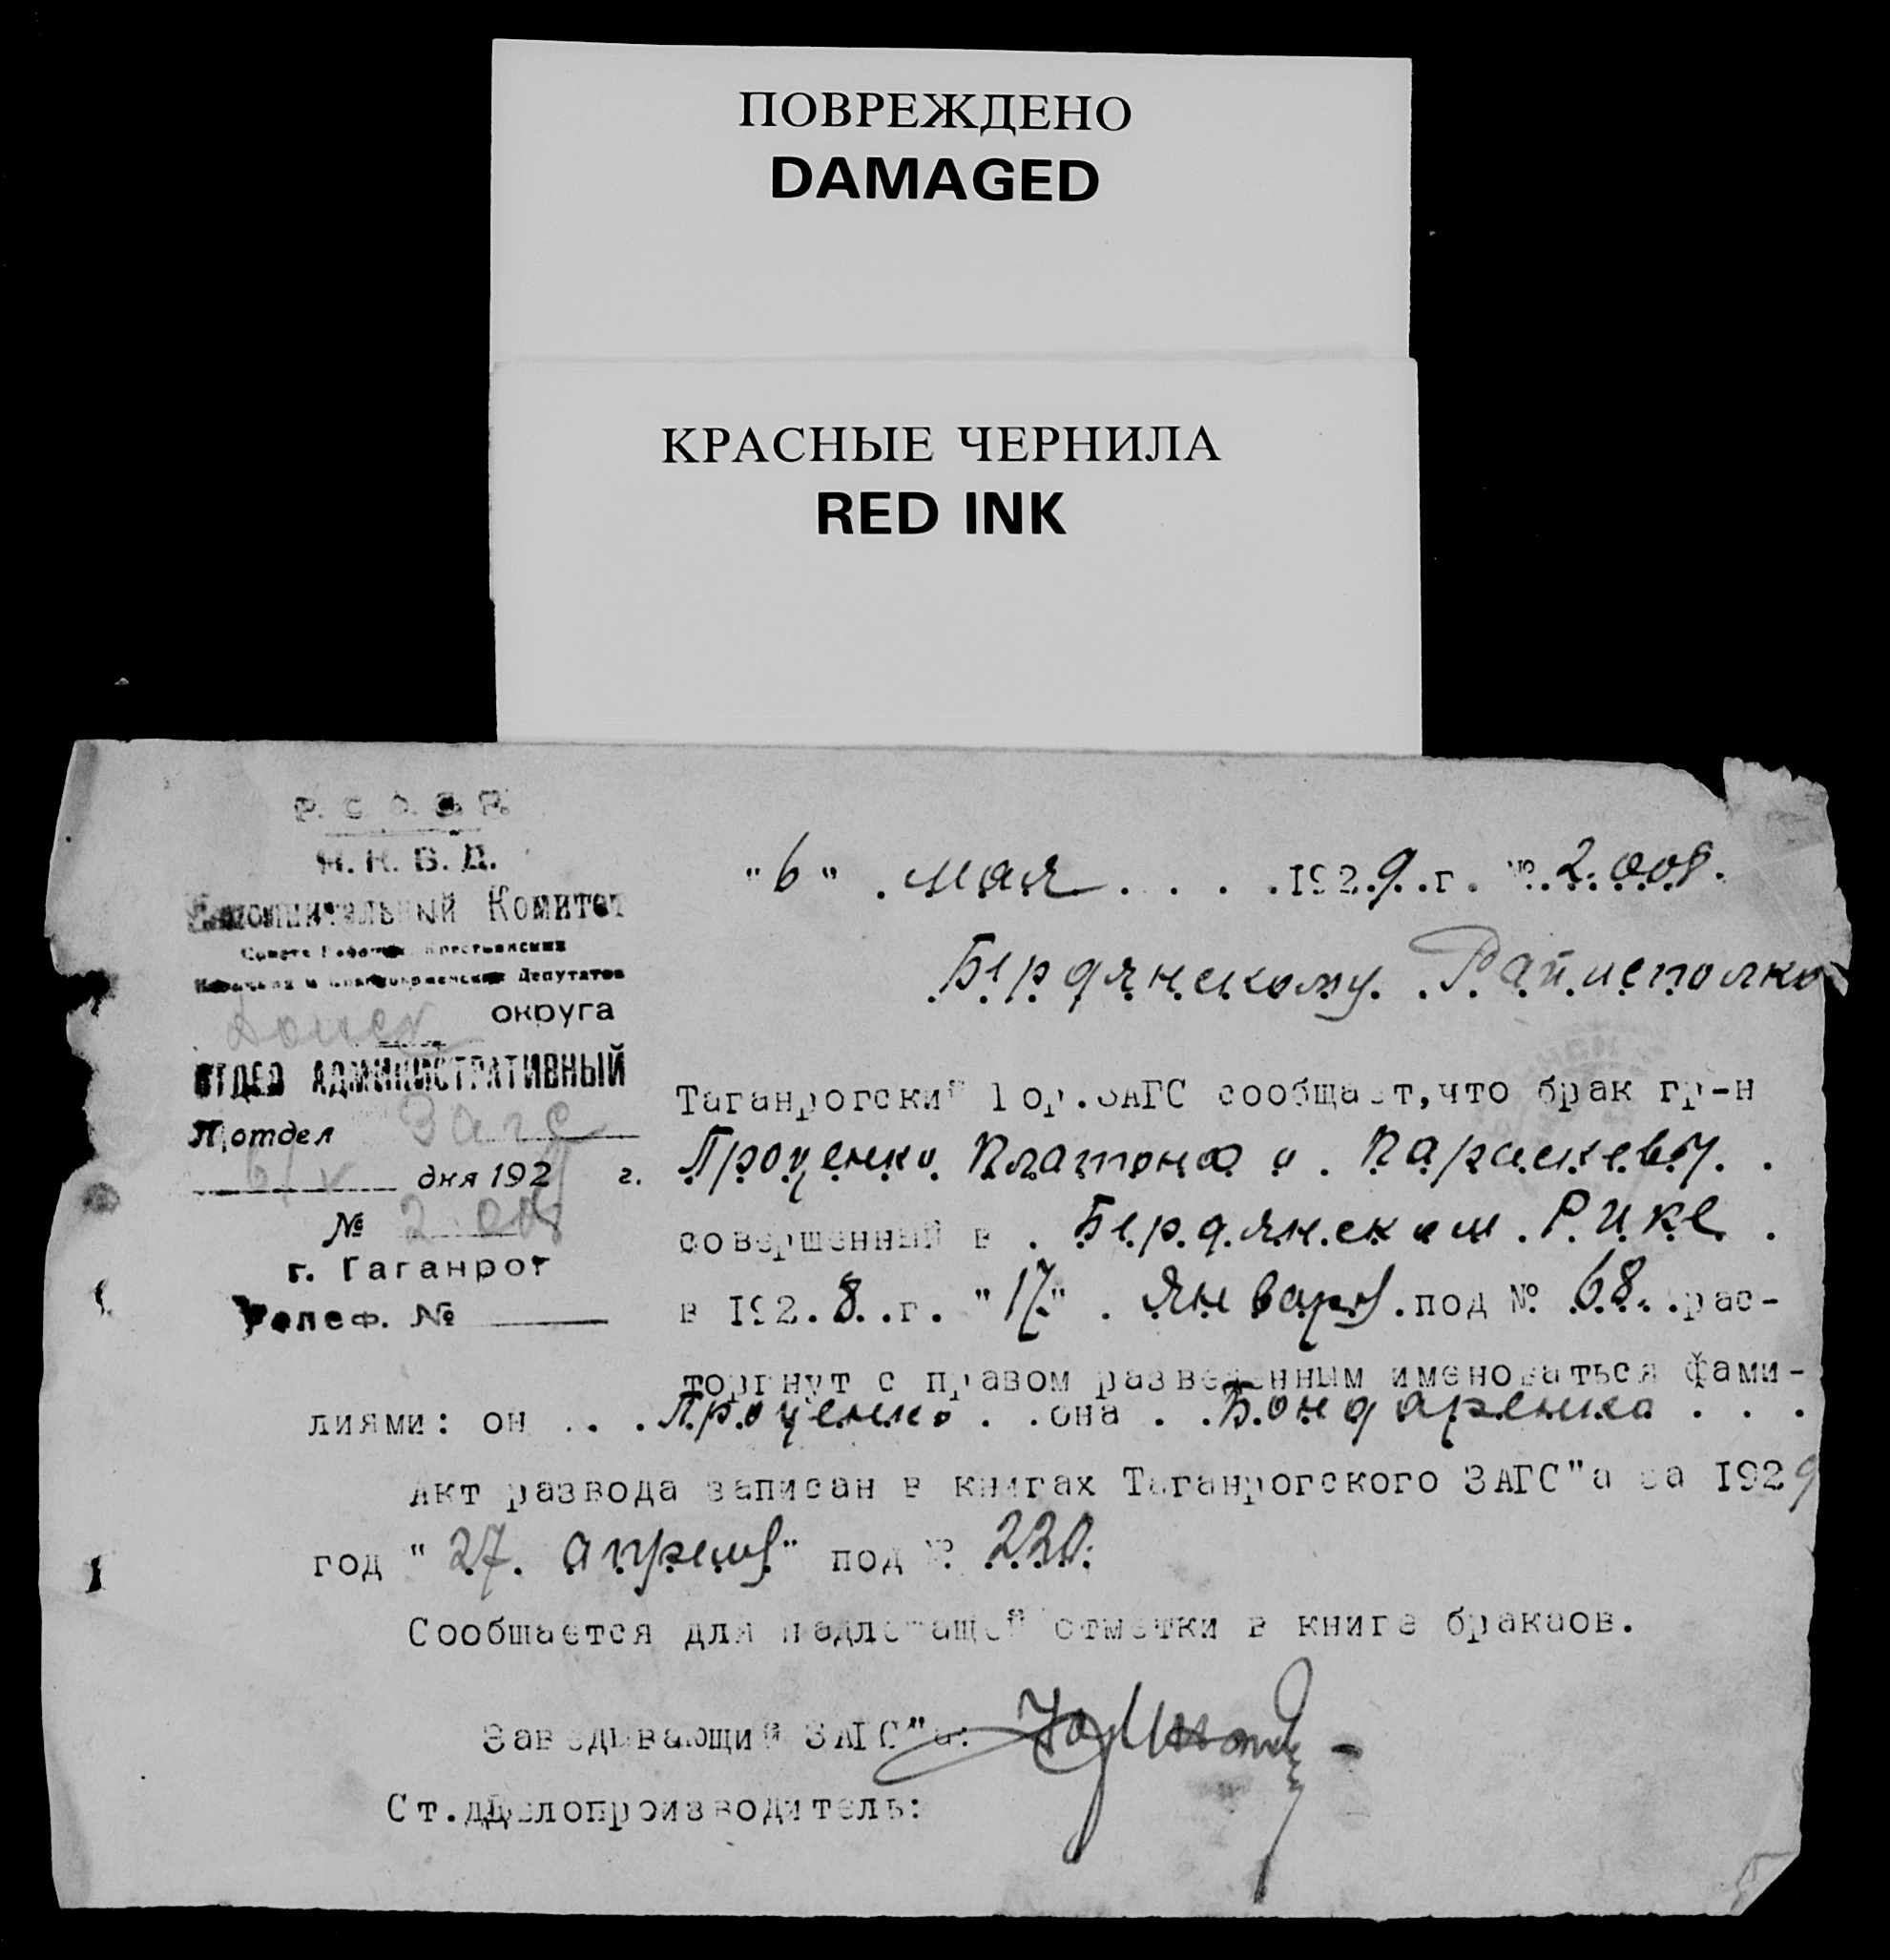 ПОВРЕЖДЕНО
DAMAGED
КРАСНЫЕ ЧЕРНИЛА
RED INK
Р. С. Ф. С. Р.
Н. К. В. Д.
Исполнительный Комитет
Совета Рабочих Крестьянских
Казачьих и Красноармейских Депутатов
Донск округа
ОТДЕЛ АДМИНИСТРАТИВНЫЙ
П,отдел Загс
6/V дня 1929 г.
№ 2.008
г. Таганрог
Телеф. №
"6" . мая . . . . 1929. г. № 2.008.
Бердянскому Райисполко
Таганрогский Гор.ЗАГС сообщает,что брак гр-н
Проценко Платона и Параскевы . .
совершенный в . Бердянском . РИКе .
в 192.8. г. "17" . января . под № 68. . рас-
торгнут с правом разведенным именоваться фами-
лиями: он . . . Проценко . . она . . Бондаренко . . .
Акт развода записан в книгах Таганрогского ЗАГС"а за 1929
год "27. апреля" под № 220.
Сообщается для надлежащей отметки в книге бракаов.
Заведывающий ЗАГС"а:
Ст.делопроизводитель: